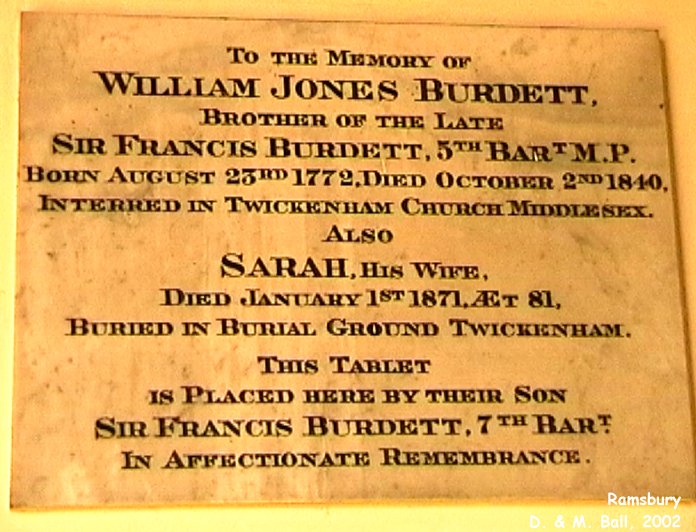 To the Memory of
William Jones Burdett,
Brother of the Late
Sir Francis Burdett, 5th Bart M.P.
Born August 23rd 1772, Died October 2nd 1840,
Interred in Twickenham Church Middlesex.
Also
Sarah, His Wife,
Died January 1st 1871, Æt 81,
Buried in Burial Ground Twickenham.
This Tablet
is Placed here by their Son
Sir Francis Burdett, 7th Bart.
In Affectionate Remembrance.
Ramsbury
D. & M. Ball, 2002